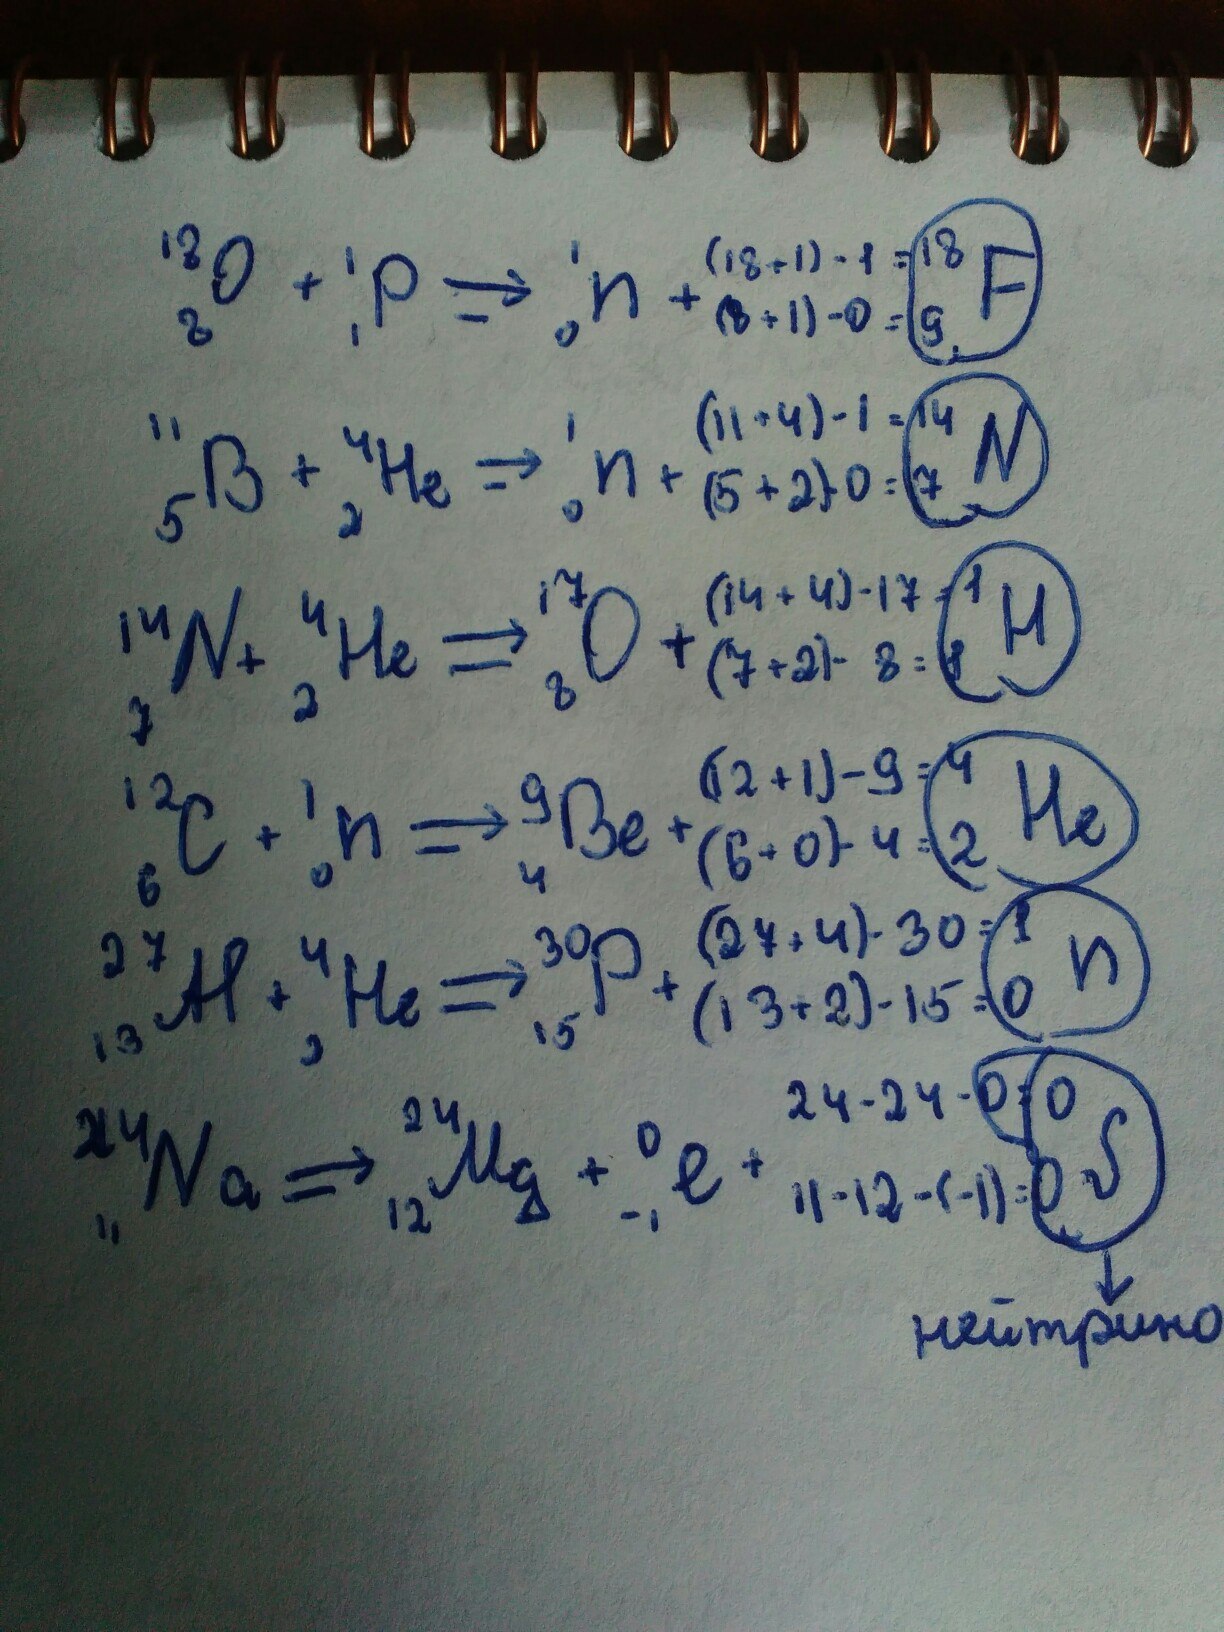 ¹⁸₈O + ¹₁P ⇒ ¹₀n + (18+1)-1=18 (8+1)-0=9 F
¹¹₅B + ⁴₂He ⇒ ¹₀n + (11+4)-1=14 (5+2)-0=7 N
¹⁴₇N + ⁴₂He ⇒ ¹⁷₈O + (14+4)-17=1 (7+2)-8=1 H
¹²₆C + ¹₀n ⇒ ⁹₄Be + (12+1)-9=4 (6+0)-4=2 He
²⁷₁₃Al + ⁴₂He ⇒ ³⁰₁₅P + (27+4)-30=1 (13+2)-15=0 n
²⁴₁₁Na ⇒ ²⁴₁₂Mg + ⁰₋₁e + 24-24-0=0 11-12-(-1)=0
нейтрино